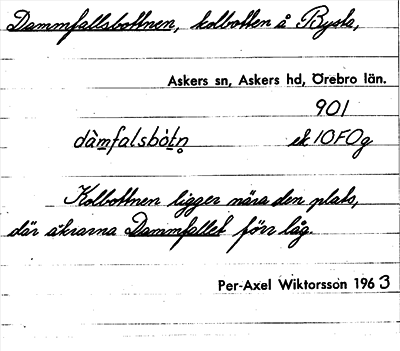 Dammfallsbottnen, kolbotten å Bysta,
Askers sn, Askers hd, Örebro län.
901
dàmfalsbòtn̥ ek 10F0g
Kolbottnen ligger nära den plats,
där åkrarna Dammfallet förr låg.
Per-Axel Wiktorsson 1963